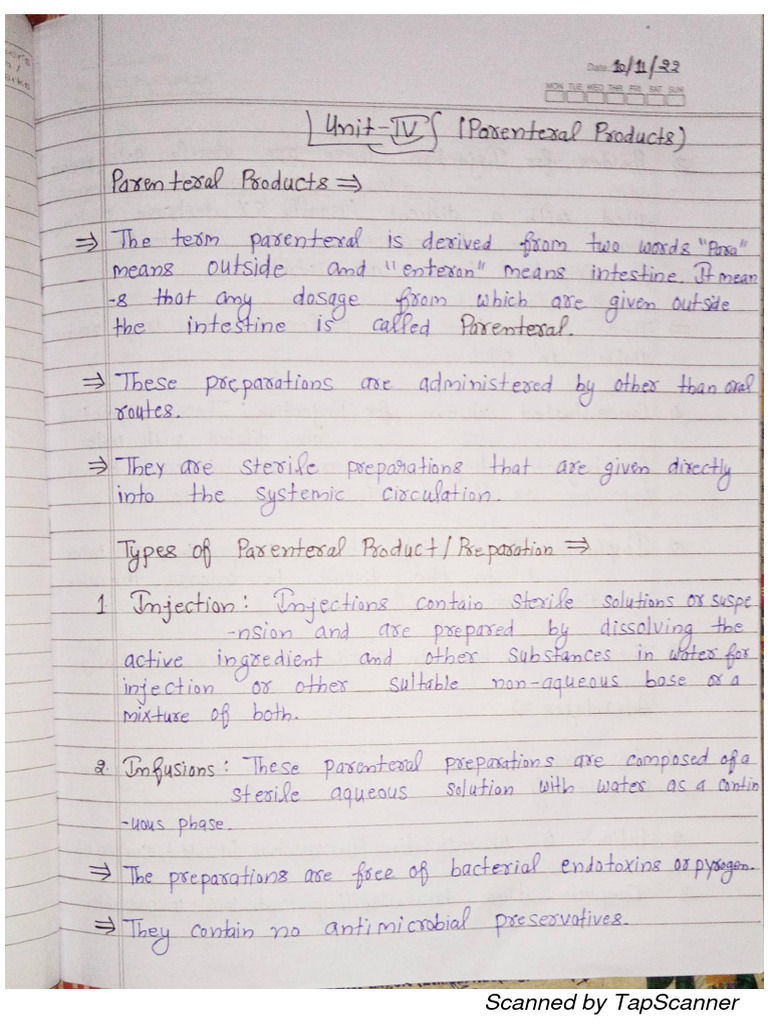 Date 10/11/22
MON TUE WED THR FRI SAT SUN
Unit-IV (Parenteral Products)
Parenteral Products ⇒
⇒ The term parenteral is derived from two words "Para"
means outside and "enteron" means intestine. It mean
-s that any dosage from which are given outside
the intestine is called Parenteral.
⇒ These preparations are administered by other than oral
routes.
⇒ They are sterile preparations that are given directly
into the systemic circulation.
Types of Parenteral Product/Preparation ⇒
1 Injection: Injections contain sterile solutions or suspe
-nsion and are prepared by dissolving the
active ingredient and other substances in water for
injection or other suitable non-aqueous base or a
mixture of both.
2. Infusions: These parenteral preparations are composed of a
sterile aqueous solution with water as a contin
-uous phase.
⇒ The preparations are free of bacterial endotoxins or pyrogen.
⇒ They contain no antimicrobial preservatives.
Scanned by TapScanner